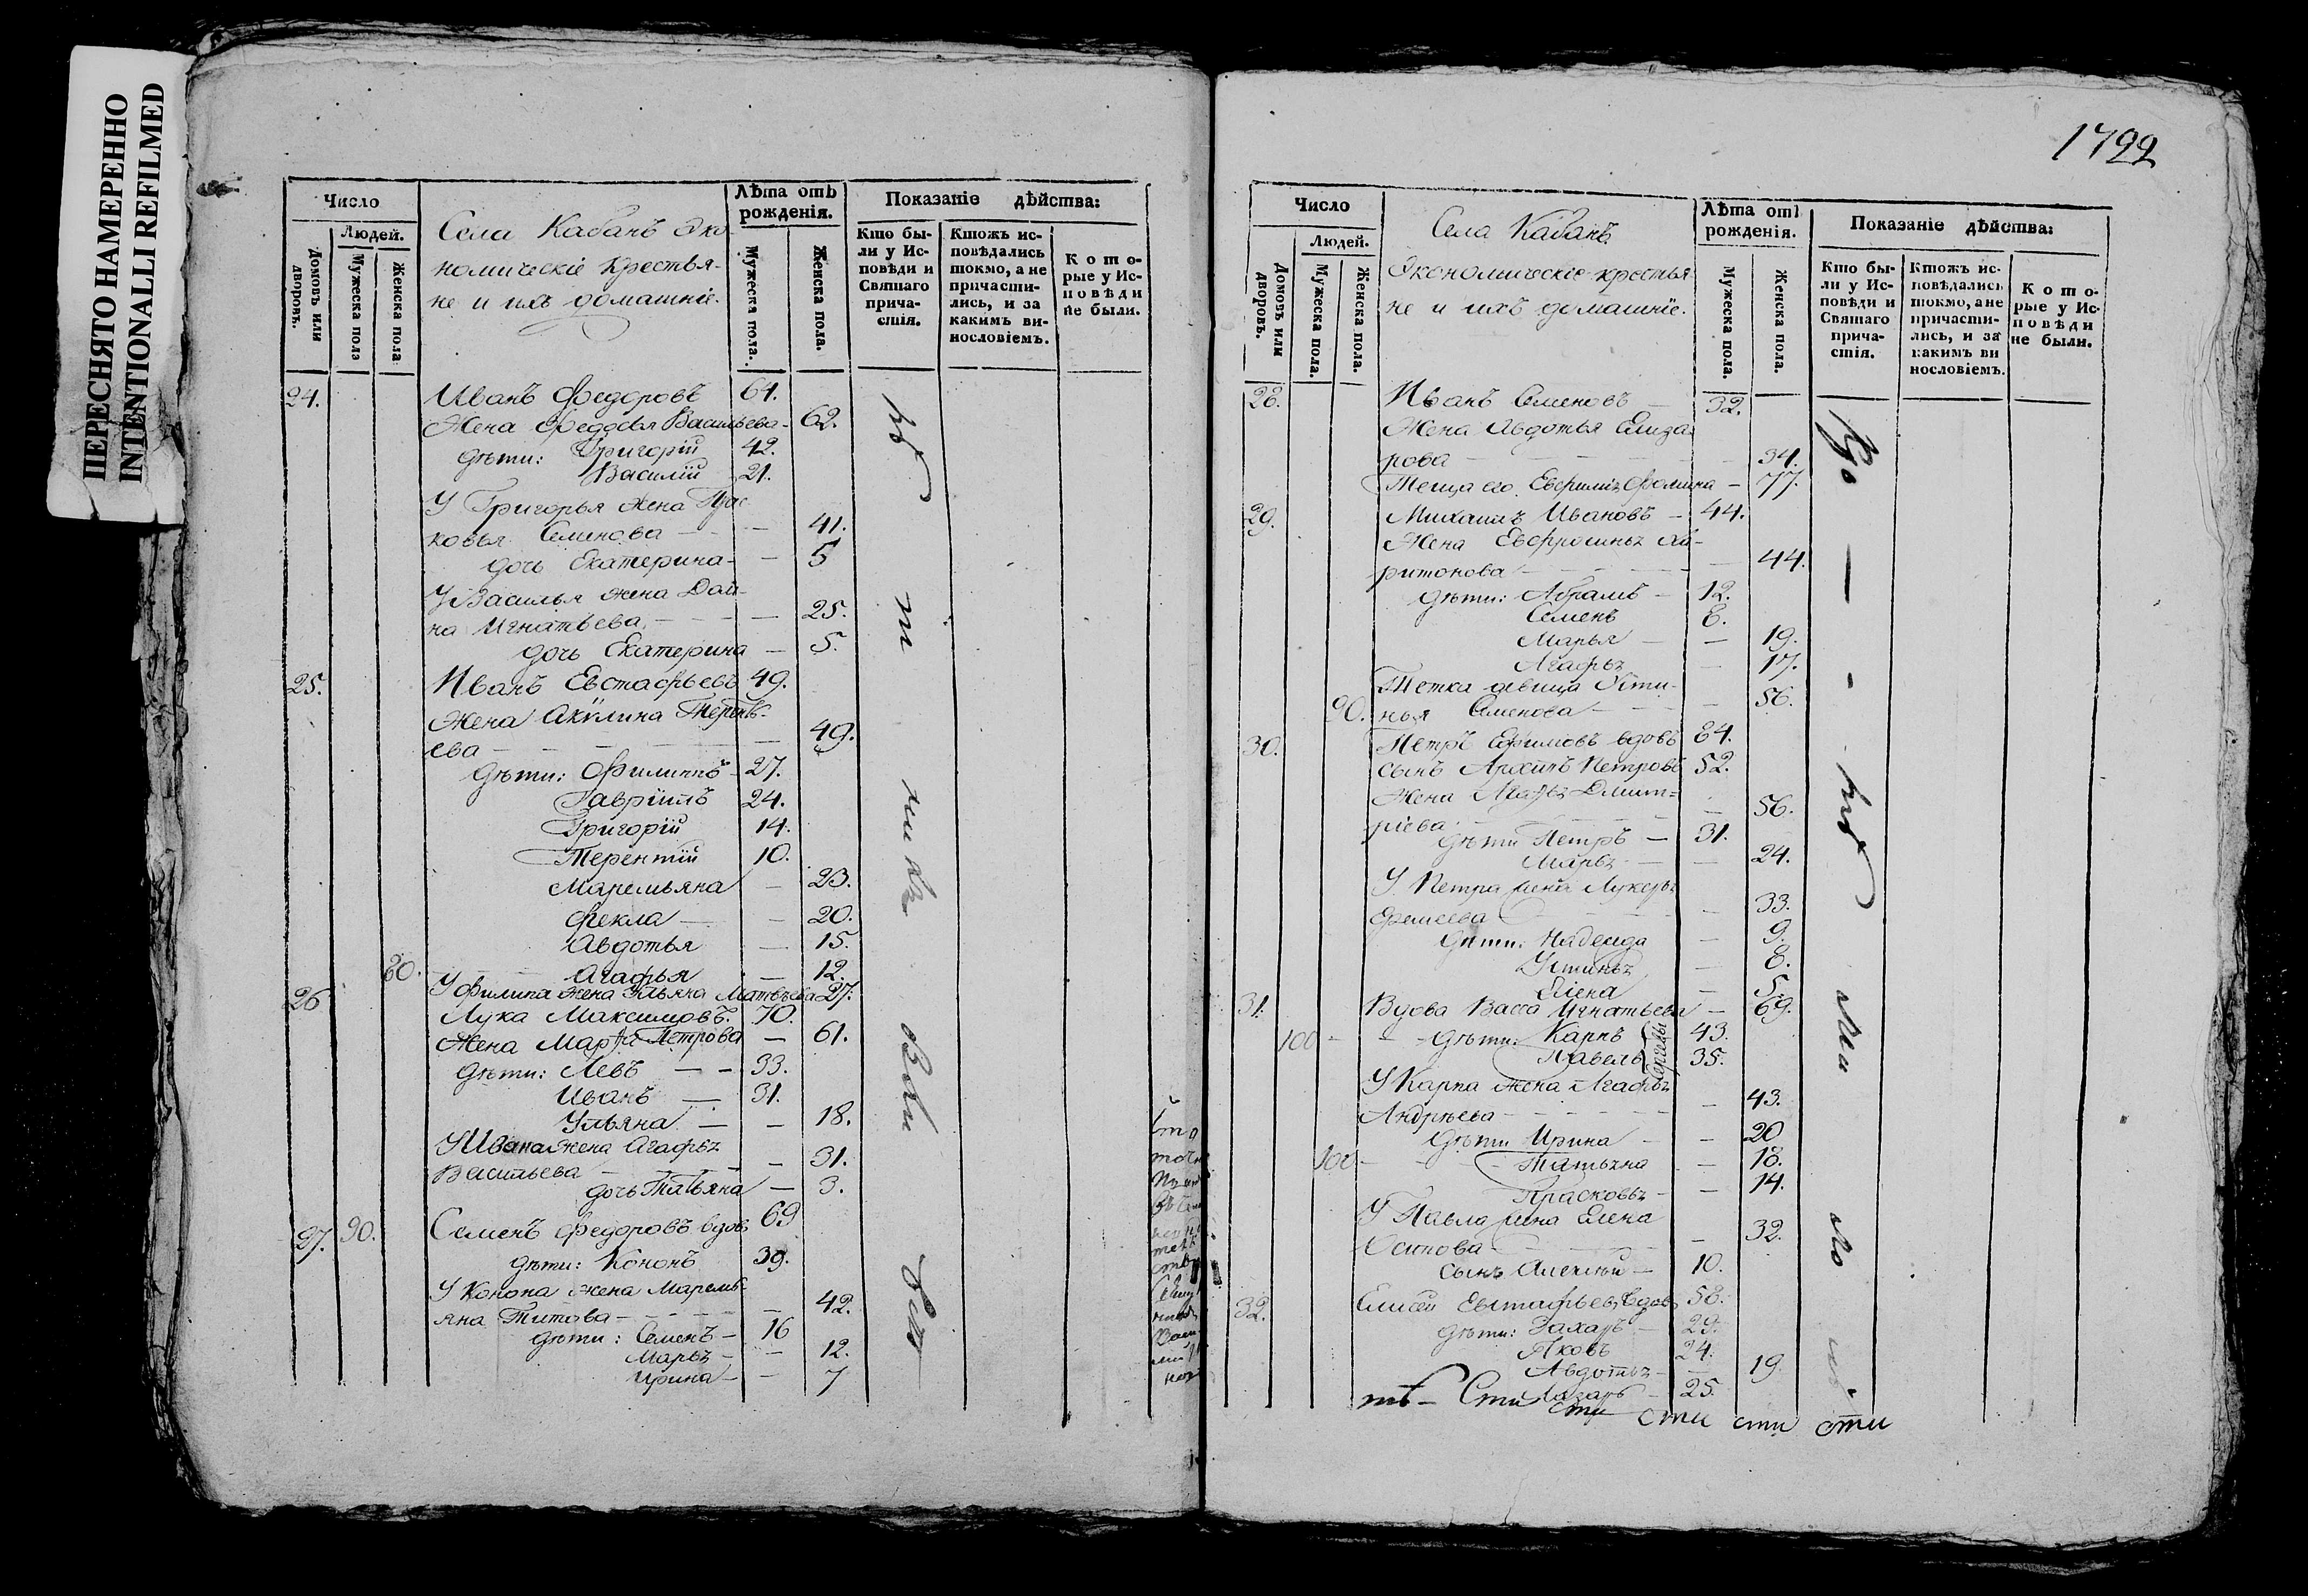 ПЕРЕСНЯТО НАМЕРЕННО
INTENTIONALLI REFILMED
Число
Людей.
Домовъ или дворовъ.
Мужеска пола
Женска пола
Села Кабанъ Эко-
номическіе крестья-
не и ихъ домашніе.
Лѣта отъ рожденія.
Мужеска пола.
Женска пола.
Показаніе дѣйства:
Кто бы-
ли у Ис-
повѣди и
Святаго
прича-
стія.
Ктожъ ис-
повѣдались
токмо, а не
причасти-
лись, и за
какимъ ви-
нословіемъ.
Кото-
рые у Ис-
повѣди
не были.
24. Иванъ Федоровъ 61.
Жена Федосья Васильева - 62.
дѣти: Григорій 42.
Василій 21.
У Григорья жена Прас
ковья Семенова — 41.
дочь Екатерина — 5
У Василья жена Дом-
на Игнатьева — 25.
дочь Екатерина — 5.
25. Иванъ Евстафьевъ 49.
Жена Акилина Терентъ-
ева — 49.
дѣти: Филиппъ 27.
Гавріилъ 24.
Григорій 14.
Терентій 10.
Маремьяна — 23.
Фекла — 20.
Авдотья — 15.
80. Агафья — 12.
У Филипа жена Ульяна Матвѣева 27.
26 Лука Максимовъ. 70.
Жена Марфа Петрова — 61.
дѣти: Левъ — 33.
Иванъ — 31.
Ульяна — 18.
У Ивана жена Агафья
Васильева — 31.
дочь Татьяна — 3.
27. 90. Семенъ Федоровъ вдов 69
дѣти: Кононъ 39.
У Конона жена Маремь-
яна Титова — 42.
дѣти: Семенъ — 16
Марья — 12.
Ирина — 7
1722
Число
Людей.
Домовъ или дворовъ.
Мужеска пола.
Женска пола.
Села Кабанъ
Экономическіе крестья
не и ихъ домашніе.
Лѣта отъ рожденія.
Мужеска пола.
Женска пола.
Показаніе дѣйства:
Кто бы-
ли у Ис-
повѣди и
Святаго
прича-
стія.
Ктожъ ис-
повѣдались
токмо, а не
причасти-
лись, и за
какимъ ви
нословіемъ.
Кото-
рые у Ис-
повѣди
не были.
28. Иванъ Семеновъ — 32.
Жена Авдотья Елиза-
рова — 34.
Теща его Евфимія Фомина — 77.
29. Михаилъ Ивановъ — 44.
Жена Евфросинья Ха-
ритонова — 44.
дѣти: Абрамъ — 12.
Семенъ 8.
Марья — 19.
Агафья — 17.
Тетка девица Усти-
90. нья Семенова — 56.
30. Петръ Ефимовъ вдовъ 84.
сынъ Архипъ Петровъ 52.
Жена Агафья Дмит=
ріева — 56.
дѣти Петръ — 31.
Марья — 24.
У Петра жена Лукерья
— 33.
дѣти: Надежда — 9.
Устинья — 8.
Елена — 5.
31. Вдова Васса Игнатьева — 69.
100 - дѣти: Карпъ 43.
Павелъ 35.
У Карпа жена Агафья
Андрѣева — 43.
дѣти Ирина — 20
100 - Татьяна — 18.
Прасковья — 14.
У Павла жена Елена
Осипова — 32.
сынъ Алексѣй — 10.
32. Елисей Евстафьевъ вдов 58.
дѣти: Захаръ — 29.
Яковъ 24.
Авдотья — 19.
Лазарь — 25.
сти сти сти